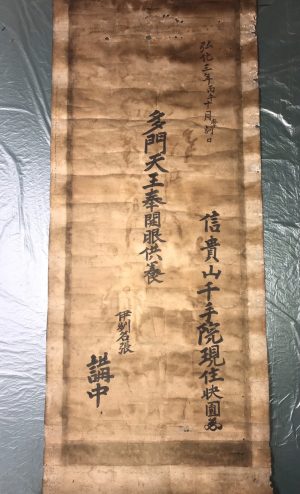 弘化三年丙午十月日
信貴山千手院現住快圓
多門天王奉開眼供養
伊刕名張
講中